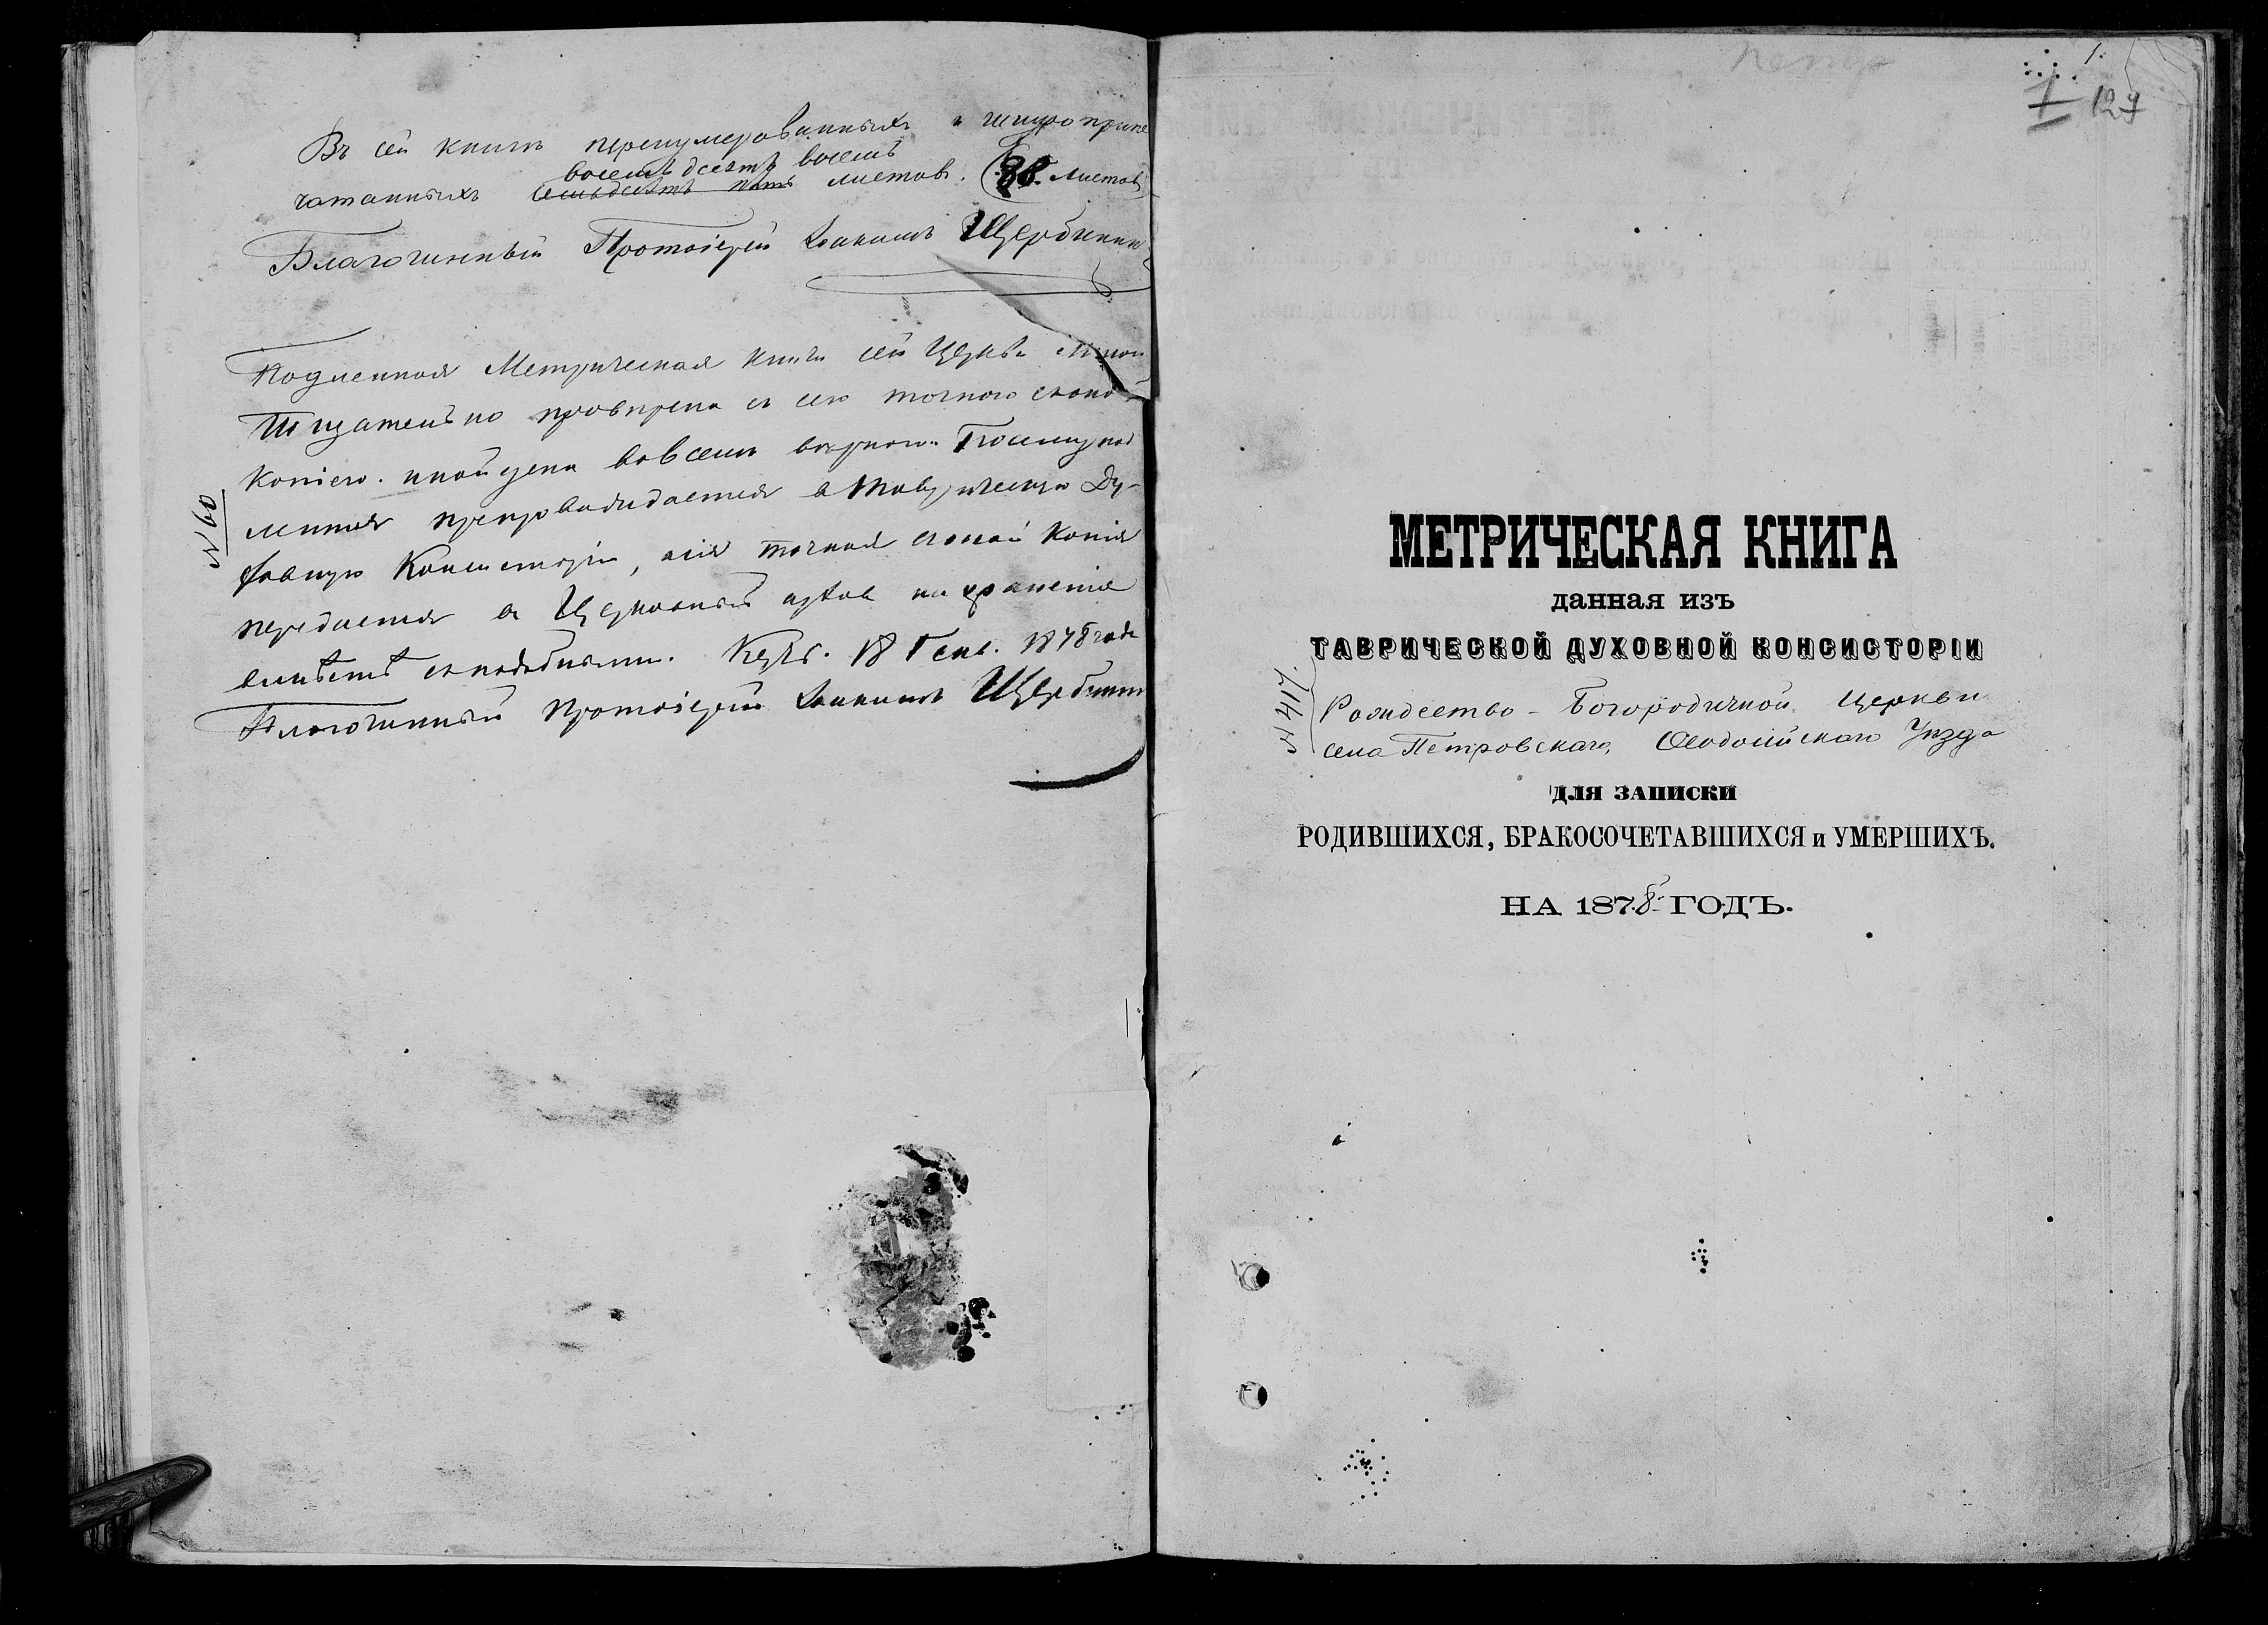 Въ сей книгѣ перенумерованныхъ и шнуроприпе
чатанныхъ семьдесятъ пять восемьдесятъ восемь листовъ. (88. листовъ)
Благочинный Протоіерей Іоакимъ Щербинин
Подлинная Метрическая книга сей Церкви мною
тщательно провѣрена съ сею точною съ оной
копіею. и найдена во всемъ вѣрною. Посему под
линная препровождается въ Таврическую Ду-
ховную Консисторію, а сія точная съ оной копія
передается въ Церковный архив на храненіе
вмѣстѣ съ подобными. Керчь. 18 Генв. 1878 года
Благочинный Протоіерей Іоакимъ Щербинин
№ 60
1.
1
129
Петр
МЕТРИЧЕСКАЯ КНИГА
данная изъ
ТАВРИЧЕСКОЙ ДУХОВНОЙ КОНСИСТОРІИ
№ 417.
Рождество-Богородичной Церкви
села Петровскаго, Ѳеодосійскаго Уѣзда
ДЛЯ ЗАПИСКИ
РОДИВШИХСЯ, БРАКОСОЧЕТАВШИХСЯ и УМЕРШИХЪ.
НА 1878 ГОДЪ.